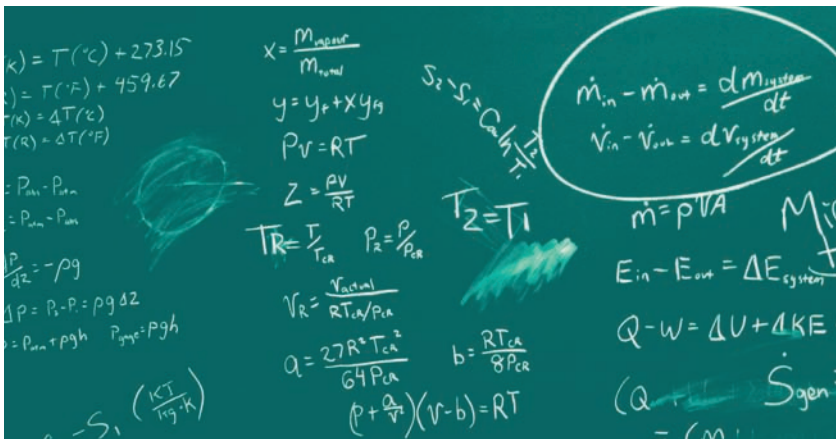 (K) = T(°C) + 273.15
) = T(°F) + 459.67
T(K) = ΔT(°C)
T(R) = ΔT(°F)
= Pabs - Patm
= Patm - Pabs
dP/dz = -ρg
ΔP = P2 - P1 = ρgΔz
= Patm + ρgh Pgage = ρgh
- S1 (KJ/kg·K)
x = mvapour/mtotal
y = yf + xyfg
Pv = RT
Z = PV/RT
TR = T/TCR P2 = P/PCR
VR = Vactual/RTCR/PCR
a = 27R²TCR²/64PCR b = RTCR/8PCR
(P + a/v²)(v-b) = RT
S2 - S1 = Ca ln T2/T1
T2 = T1
ṁin - ṁout = dmsystem/dt
v̇in - v̇out = dVsystem/dt
ṁ = ρVA
Ein - Eout = ΔEsystem
Q - W = ΔU + ΔKE
(Q
Ṡgen